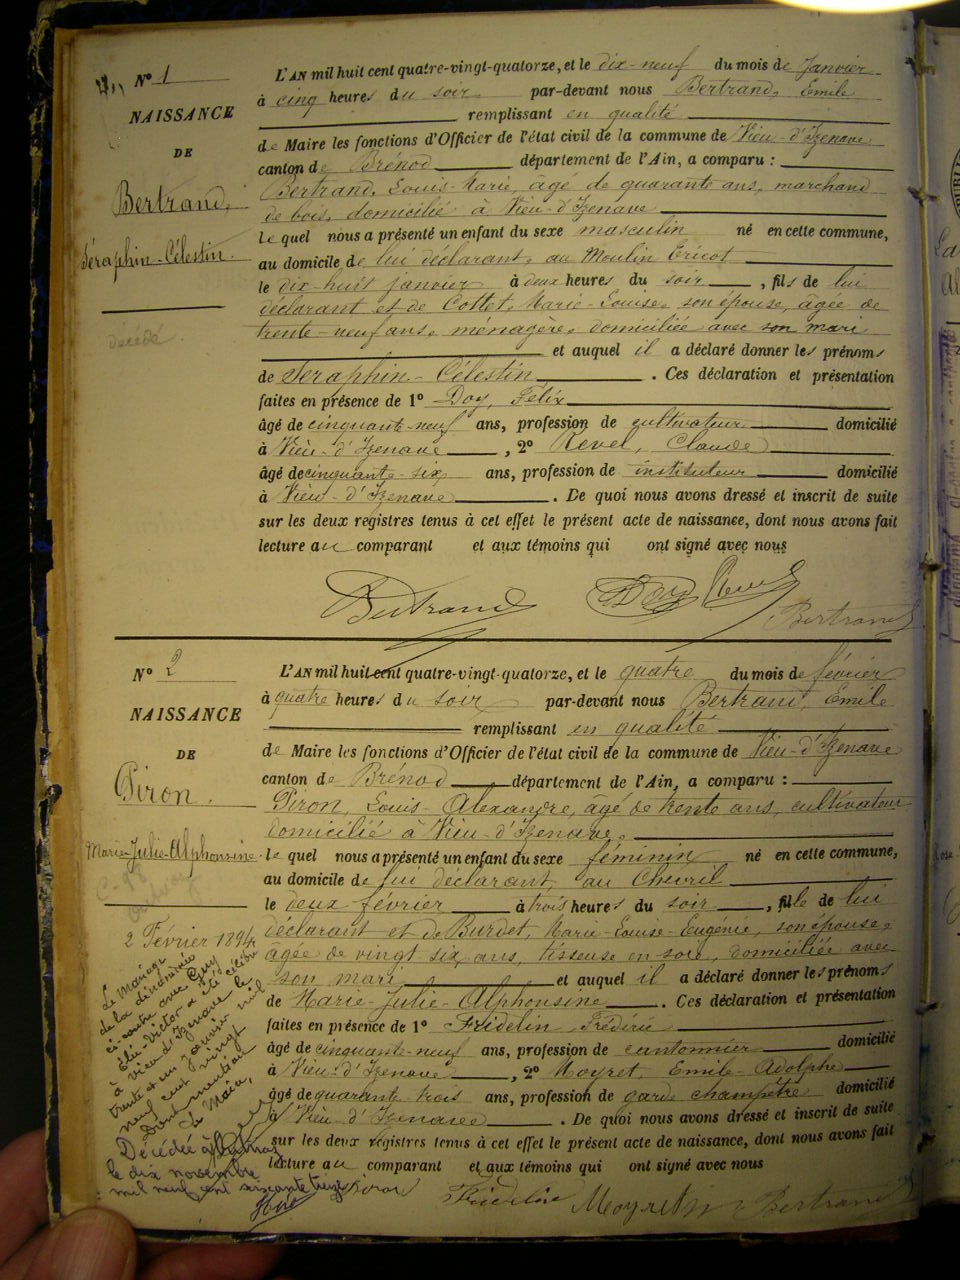 Nº 1
NAISSANCE
DE
Bertrand,
Séraphin-Célestin.
décédé.
L'AN mil huit cent quatre-vingt-quatorze, et le dix-neuf du mois de Janvier
à cinq heures du soir par-devant nous Bertrand, Emile
remplissant en qualité
de Maire les fonctions d'Officier de l'état civil de la commune de Vieu-d'Izenave,
canton de Brénod département de l'Ain, a comparu :
Bertrand, Louis-Marie, âgé de quarante ans, marchand
de bois, domicilié à Vieu-d'Izenave
le quel nous a présenté un enfant du sexe masculin né en cette commune,
au domicile de lui déclarant, au Moulin Ericot
le dix-huit janvier à deux heures du soir, fils de lui
déclarant et de Cottet, Marie-Louise, son épouse, âgée de
trente-neuf ans, ménagère, domiciliée avec son mari
et auquel il a déclaré donner les prénoms
de Seraphin-Célestin. Ces déclaration et présentation
faites en présence de 1º Doy, Félix
âgé de cinquante-neuf ans, profession de cultivateur domicilié
à Vieu-d'Izenave, 2º Revel, Claude
âgé de cinquante-six ans, profession de instituteur domicilié
à Vieu-d'Izenave. De quoi nous avons dressé et inscrit de suite
sur les deux registres tenus à cet effet le présent acte de naissance, dont nous avons fait
lecture au comparant et aux témoins qui ont signé avec nous
Bertrand Doy Revel Bertrand
Nº 2
NAISSANCE
DE
Piron.
Marie-Julie-Alphonsine.
2 Février 1894
Le mariage
de la dénommée
ci-contre avec Guy
Elie Victor a été célébré
à Vieu d'Izenave le
trente et un janvier mil
neuf cent vingt
Dont mention
Le Maire,
Décédée à
le dix novembre
mil neuf cent soixante treize
L'AN mil huit cent quatre-vingt-quatorze, et le quatre du mois de février
à quatre heures du soir par-devant nous Bertrand, Emile
remplissant en qualité
de Maire les fonctions d'Officier de l'état civil de la commune de Vieu-d'Izenave
canton de Brénod département de l'Ain, a comparu :
Piron, Louis-Alexandre, âgé de trente ans, cultivateur
domicilié à Vieu-d'Izenave,
le quel nous a présenté un enfant du sexe féminin né en cette commune,
au domicile de lui déclarant, au Chevril
le deux février à trois heures du soir, fille de lui
déclarant et de Burdet, Marie-Louise-Eugénie, son épouse,
âgée de vingt six ans, tisseuse en soie, domiciliée avec
son mari et auquel il a déclaré donner les prénoms
de Marie-Julie-Alphonsine. Ces déclaration et présentation
faites en présence de 1º Fridelin, Frédéric
âgé de cinquante-neuf ans, profession de cantonnier domicilié
à Vieu-d'Izenave, 2º Moyret, Emile-Adolphe
âgé de quarante trois ans, profession de garde champêtre domicilié
à Vieu d'Izenave. De quoi nous avons dressé et inscrit de suite
sur les deux registres tenus à cet effet le présent acte de naissance, dont nous avons fait
lecture au comparant et aux témoins qui ont signé avec nous
Piron Fridelin Moyret Bertrand